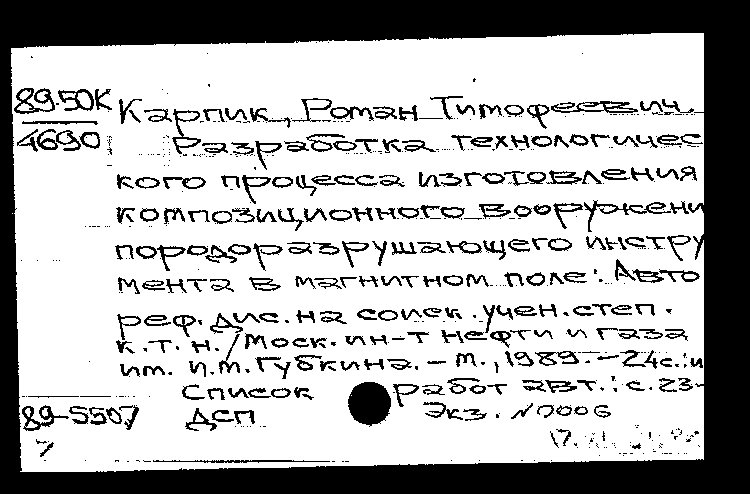 89-50К
4690
Карпик, Роман Тимофеевич.
Разработка технологичес
кого процесса изготовления
композиционного вооружени
породоразрушающего инстру
мента в магнитном поле: Авто
реф. дис. на соиск. учен. степ.
к.т.н. / Моск. ин-т нефти и газа
им. И.М. Губкина. - М., 1989. - 24с.: и
Список работ авт.: с. 23-
89-5507 ДСП Экз. №0006
7